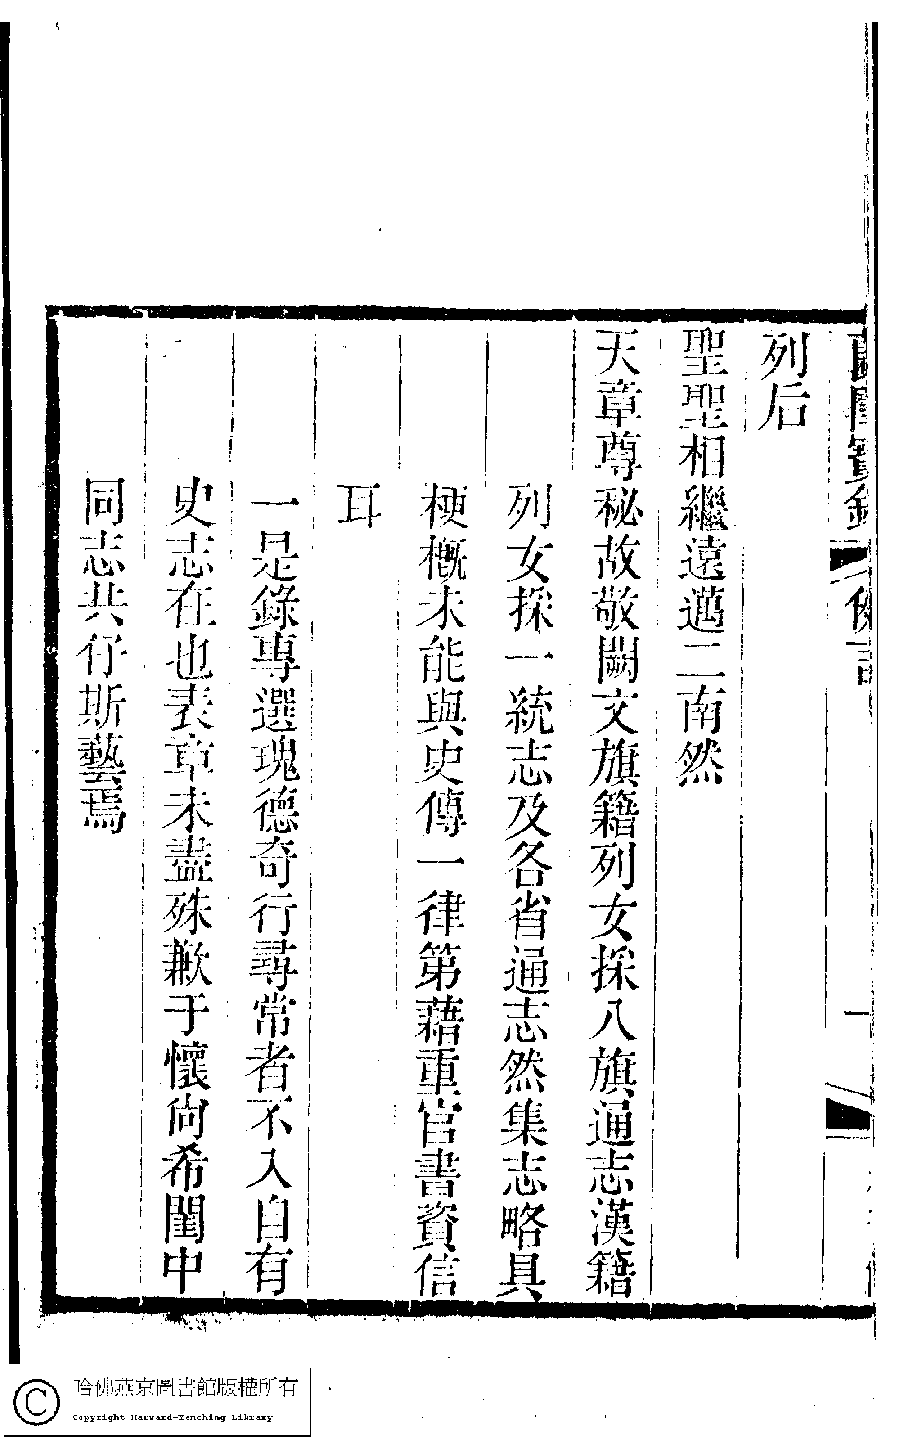 蘭閨寶錄 例言 一
列后
聖聖相繼遠邁二南然
天章尊秘故敬闕文旗籍列女採八旗通志漢籍
列女採一統志及各省通志然集志略具
梗概未能與史傳一律第藉重官書資信
耳
一是錄專選瑰德奇行尋常者不入自有
史志在也表章未盡殊歉于懷尙希閨中
同志共仔斯藝焉
哈佛燕京圖書館版權所有
Copyright Harvard-Yenching Library